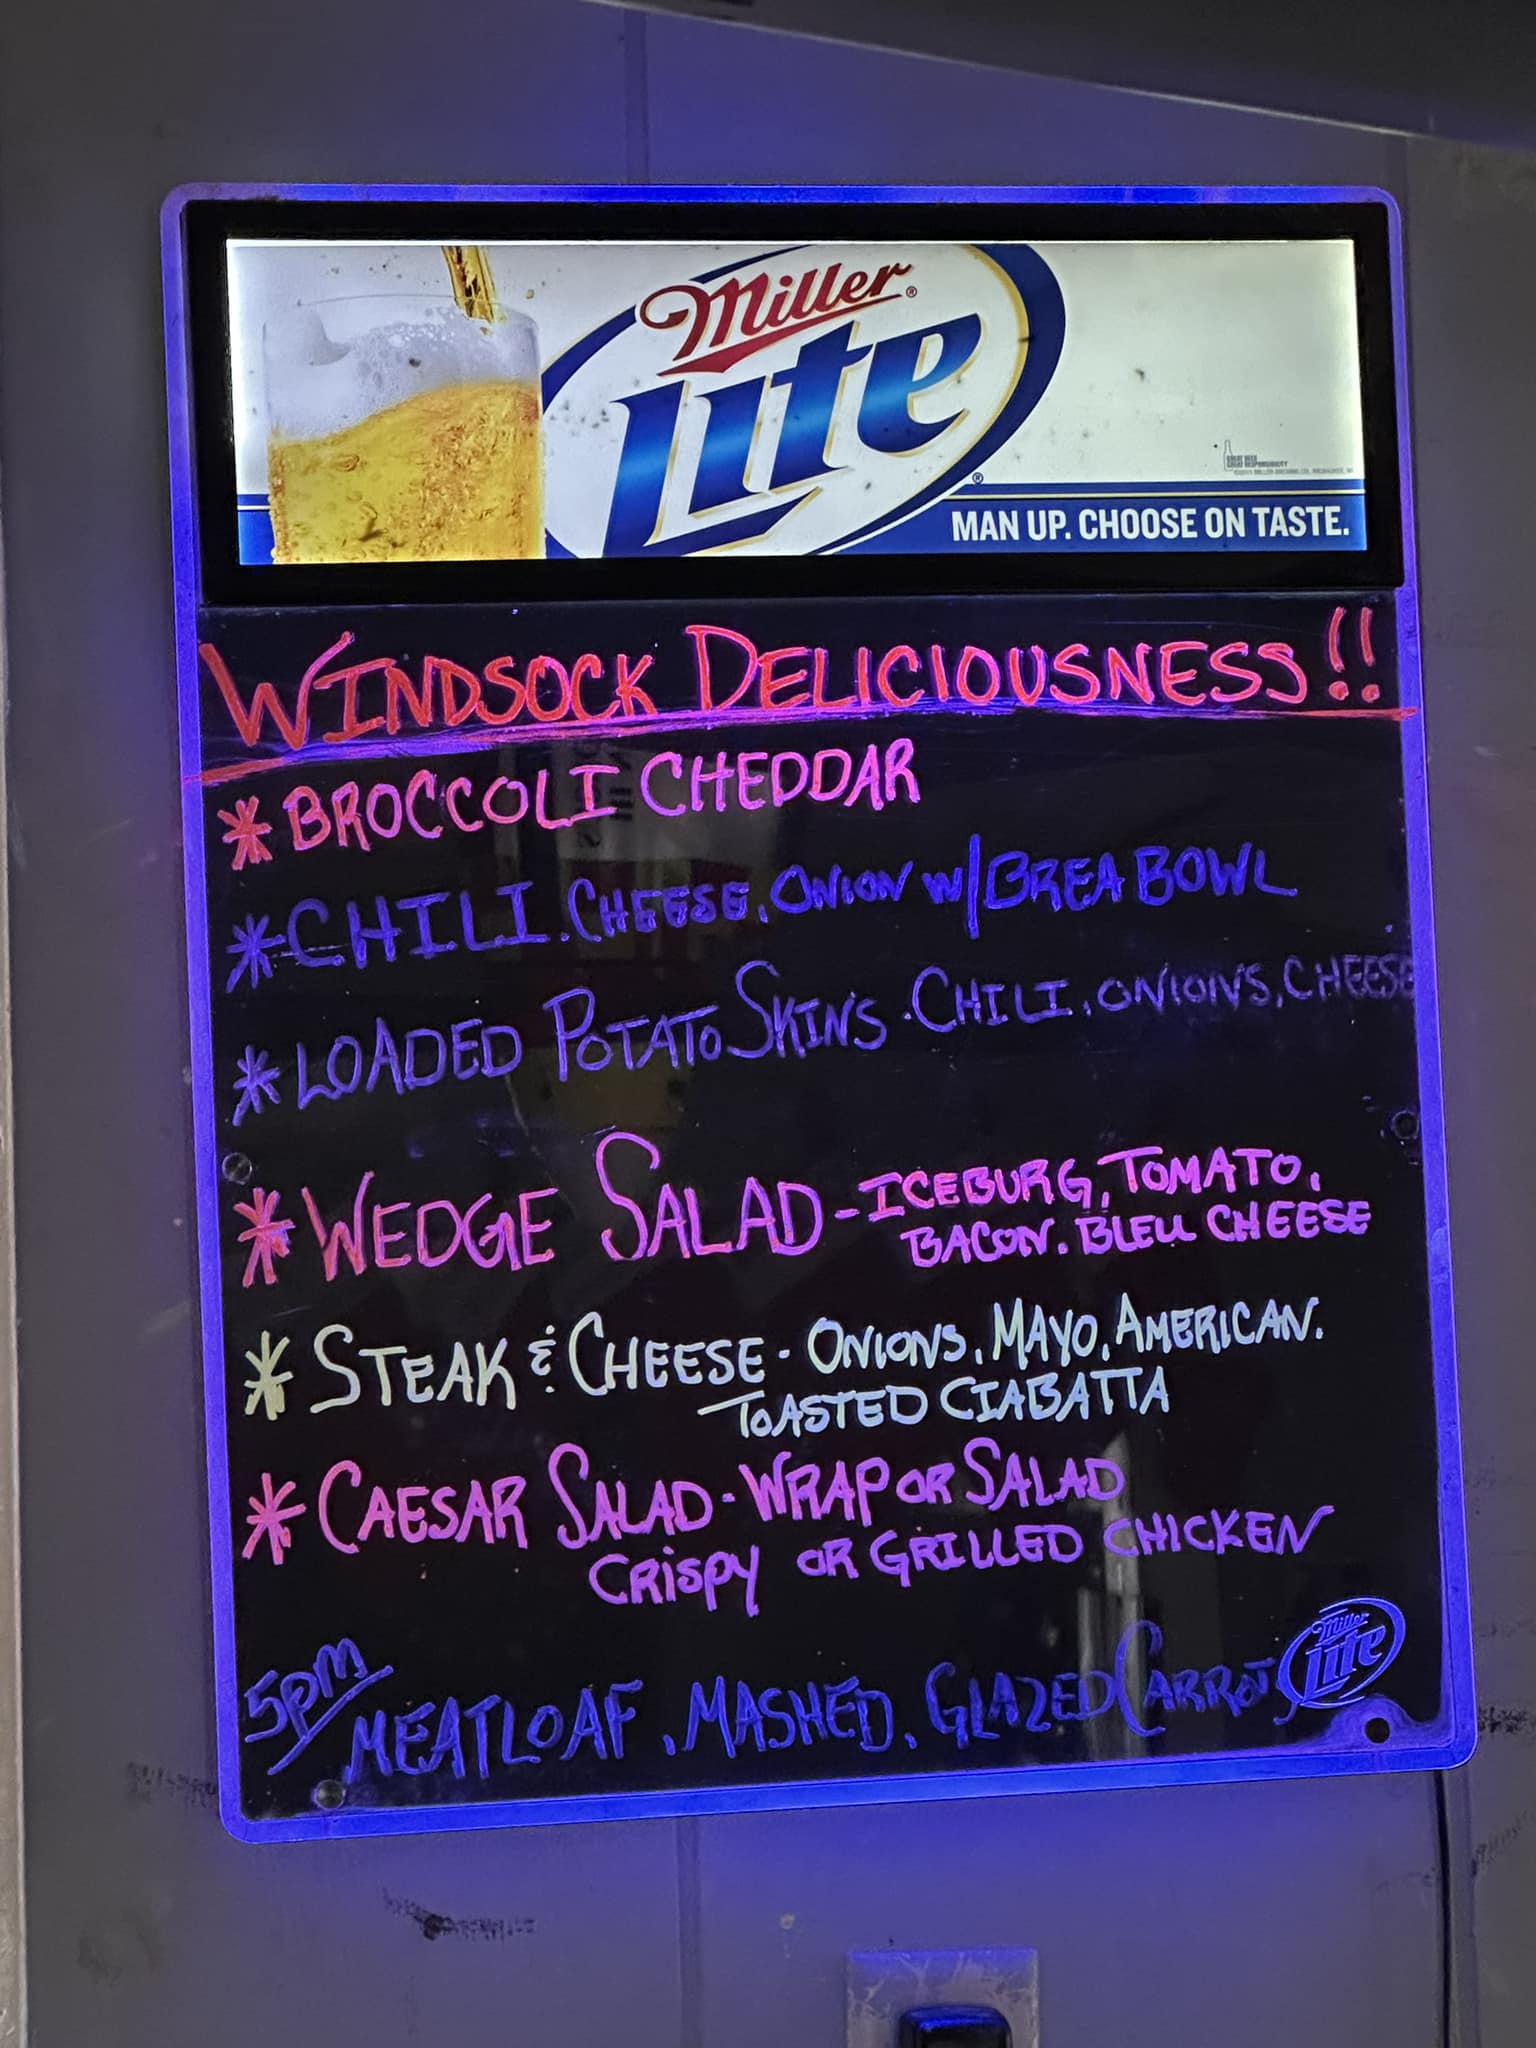 Miller
Lite
MAN UP. CHOOSE ON TASTE.
WINDSOCK DELICIOUSNESS!!
* BROCCOLI CHEDDAR
* CHILI. CHEESE, ONION W/BREA BOWL
* LOADED POTATO SKINS. CHILI, ONIONS, CHEESE
* WEDGE SALAD - ICEBURG, TOMATO,
BACON. BLEU CHEESE
* STEAK & CHEESE - ONIONS, MAYO, AMERICAN.
TOASTED CIABATTA
* CAESAR SALAD - WRAP OR SALAD
CRISPY OR GRILLED CHICKEN
5PM
MEATLOAF, MASHED, GLAZED CARROTS
Miller
Lite